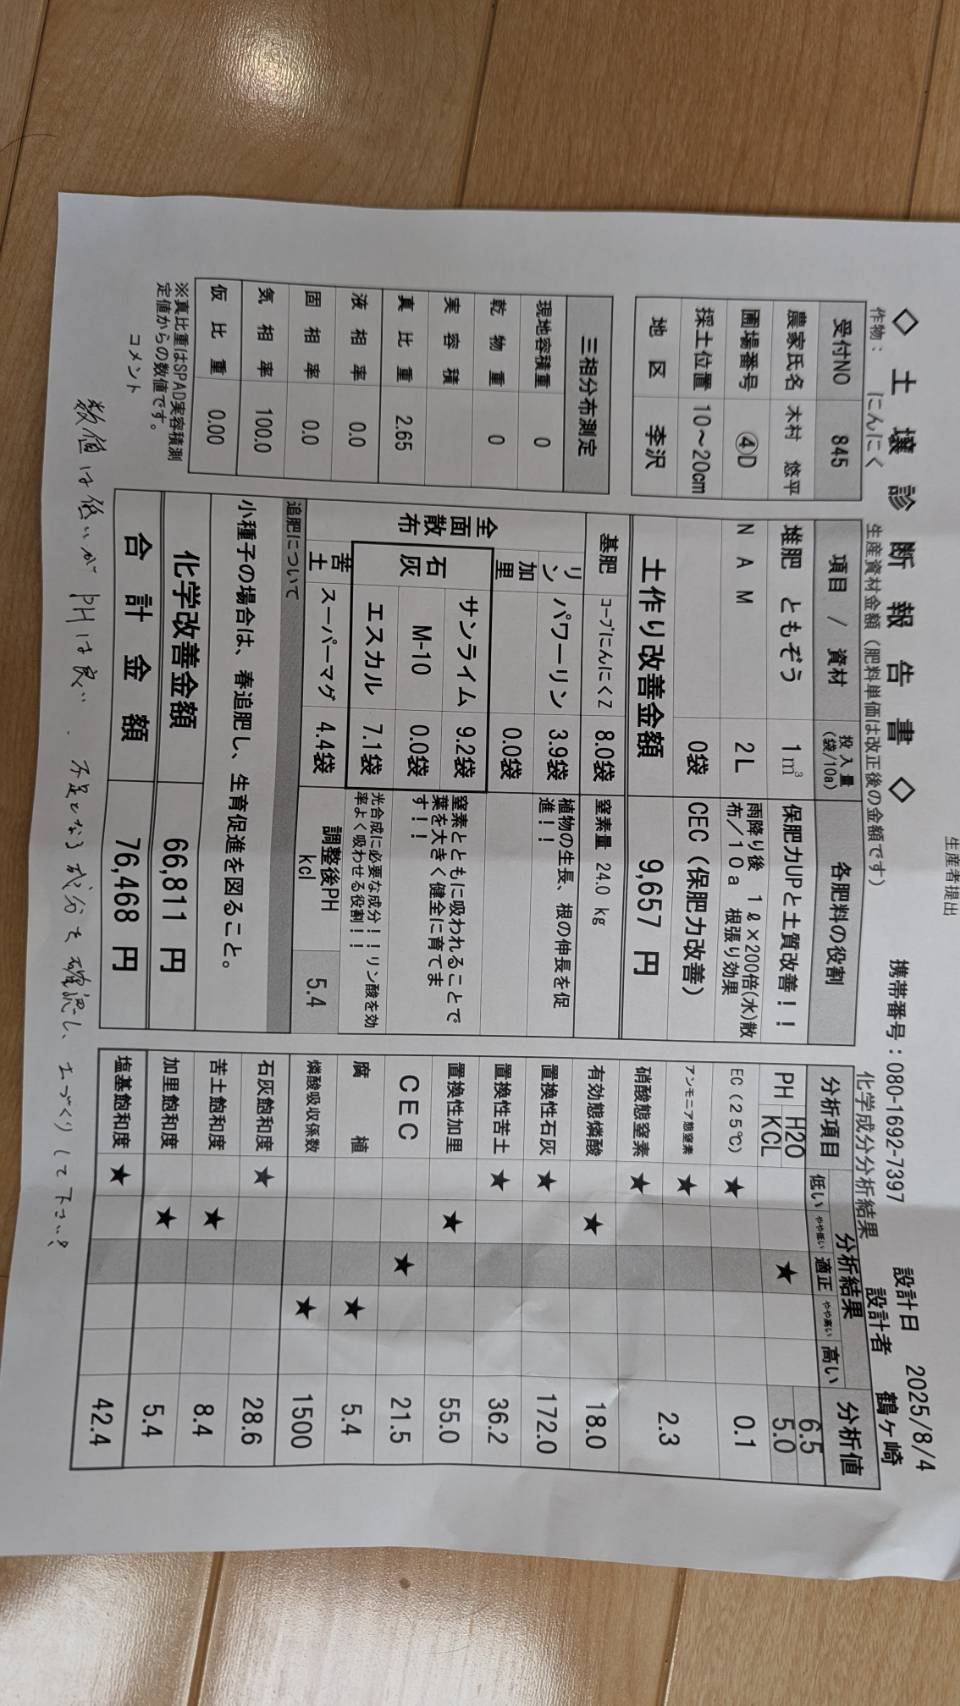 生産者提出
◇ 土 壌 診 断 報 告 書 ◇
携帯番号：080-1692-7397
設計日 2025/8/4
設計者 鶴ヶ崎
作物： にんにく
生産資材金額（肥料単価は改正後の金額です）
化学成分分析結果
受付NO 845
農家氏名 木村 悠平
圃場番号 ④D
採土位置 10～20cm
地 区 李沢
三相分布測定
現地容積重 0
乾 物 重 0
実 容 積
真 比 重 2.65
液 相 率 0.0
固 相 率 0.0
気 相 率 100.0
仮 比 重 0.00
※真比重はSPAD実容積測
定値からの数値です。
項目 / 資材 投入量（袋/10a） 各肥料の役割
堆肥 ともぞう 1㎥ 保肥力UPと土質改善！！
N A M 2L 雨降り後 1ℓ×200倍(水)散布/10a 根張り効果
0袋 CEC（保肥力改善）
土作り改善金額 9,657 円
基肥 コープにんにくZ 8.0袋 窒素量 24.0 kg
全面散布
リン パワーリン 3.9袋 植物の生長、根の伸長を促進！！
加里 0.0袋
石灰 サンライム 9.2袋 窒素とともに吸われることで葉を大きく健全に育てます！！
M-10 0.0袋
エスカル 7.1袋
苦土 スーパーマグ 4.4袋 光合成に必要な成分！！リン酸を効率よく吸わせる役割！！
調整後PH kcl 5.4
追肥について
小種子の場合は、春追肥し、生育促進を図ること。
化学改善金額 66,811 円
合 計 金 額 76,468 円
分析項目 分析結果 分析値
低い やや低い 適正 やや高い 高い
PH H2O 6.5
KCL ★ 5.0
EC（25℃） ★ 0.1
アンモニア態窒素 ★
硝酸態窒素 ★ 2.3
有効態燐酸 ★ 18.0
置換性石灰 ★ 172.0
置換性苦土 ★ 36.2
置換性加里 ★ 55.0
CEC ★ 21.5
腐 植 ★ 5.4
燐酸吸収係数 ★ 1500
石灰飽和度 ★ 28.6
苦土飽和度 ★ 8.4
加里飽和度 ★ 5.4
塩基飽和度 ★ 42.4
コメント
数値は低いが PHは良い、不足となる成分を確認し、土づくりして下さい。